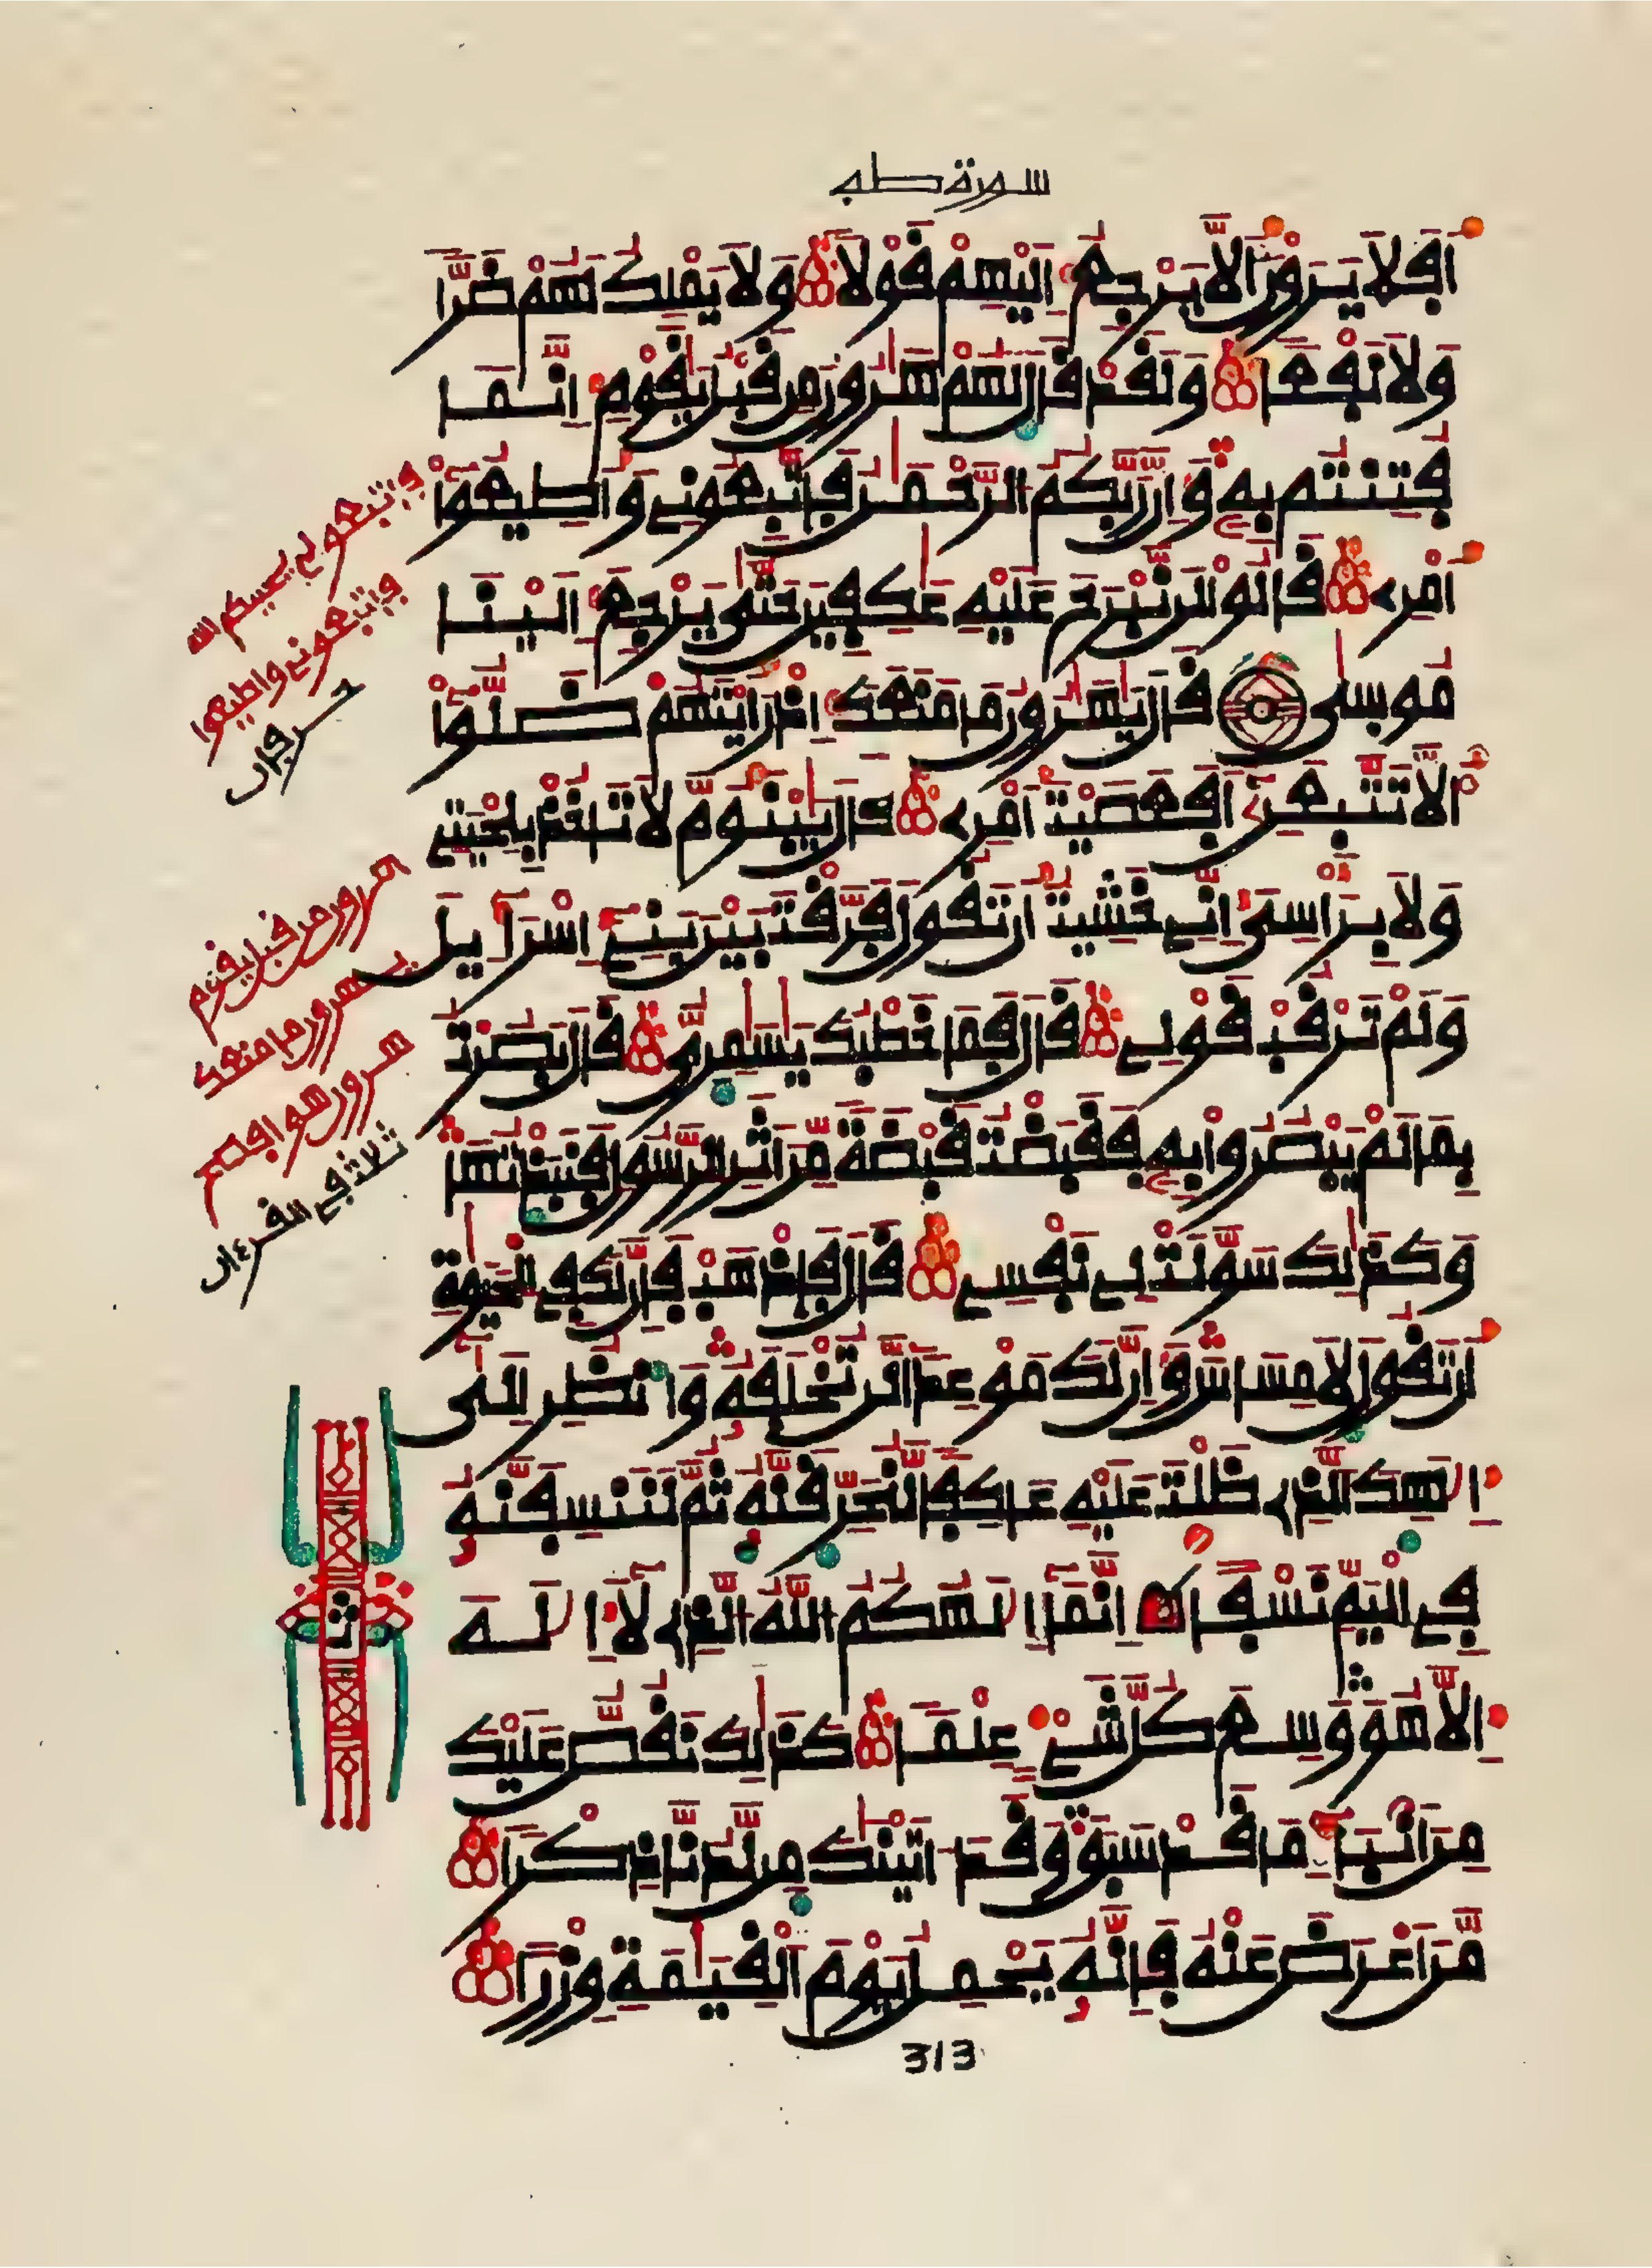 سورة طه
اَفَلَا يَرَوْنَ اَلَّا يَرْجِعُ اِلَيْهِمْ قَوْلًا وَلَا يَمْلِكُ لَهُمْ ضَرًّا
وَلَا نَفْعًا وَلَقَدْ قَالَ لَهُمْ هَٰرُونُ مِن قَبْلُ يَٰقَوْمِ اِنَّمَا
فُتِنتُم بِهِ وَإِنَّ رَبَّكُمُ الرَّحْمَٰنُ فَاتَّبِعُونِي وَأَطِيعُوا
أَمْرِي قَالُوا لَن نَّبْرَحَ عَلَيْهِ عَٰكِفِينَ حَتَّىٰ يَرْجِعَ إِلَيْنَا
مُوسَىٰ قَالَ يَٰهَٰرُونُ مَا مَنَعَكَ إِذْ رَأَيْتَهُمْ ضَلُّوا
أَلَّا تَتَّبِعَنِ أَفَعَصَيْتَ أَمْرِي قَالَ يَبْنَؤُمَّ لَا تَأْخُذْ بِلِحْيَتِي
وَلَا بِرَأْسِي إِنِّي خَشِيتُ أَن تَقُولَ فَرَّقْتَ بَيْنَ بَنِي إِسْرَآءِيلَ
وَلَمْ تَرْقُبْ قَوْلِي قَالَ فَمَا خَطْبُكَ يَٰسَٰمِرِيُّ قَالَ بَصُرْتُ
بِمَا لَمْ يَبْصُرُوا بِهِ فَقَبَضْتُ قَبْضَةً مِّنْ أَثَرِ الرَّسُولِ فَنَبَذْتُهَا
وَكَذَٰلِكَ سَوَّلَتْ لِي نَفْسِي قَالَ فَاذْهَبْ فَإِنَّ لَكَ فِي الْحَيَوٰةِ
أَن تَقُولَ لَا مِسَاسَ وَإِنَّ لَكَ مَوْعِدًا لَّن تُخْلَفَهُ وَانظُرْ إِلَىٰ
إِلَٰهِكَ الَّذِي ظَلْتَ عَلَيْهِ عَاكِفًا لَّنُحَرِّقَنَّهُ ثُمَّ لَنَنسِفَنَّهُ
فِي الْيَمِّ نَسْفًا إِنَّمَا إِلَٰهُكُمُ اللَّهُ الَّذِي لَا إِلَٰهَ
إِلَّا هُوَ وَسِعَ كُلَّ شَيْءٍ عِلْمًا كَذَٰلِكَ نَقُصُّ عَلَيْكَ
مِنْ أَنۢبَآءِ مَا قَدْ سَبَقَ وَقَدْ ءَاتَيْنَٰكَ مِن لَّدُنَّا ذِكْرًا
مَّنْ أَعْرَضَ عَنْهُ فَإِنَّهُ يَحْمِلُ يَوْمَ الْقِيَٰمَةِ وِزْرًا
313
فاتبعوني يحببكم الله
فاتبعوني واطيعوا
حرفان
هرون من قبل يقوم
يهرون ما منعك
هرون هو افصح
ثلاثة في القرءان
ث